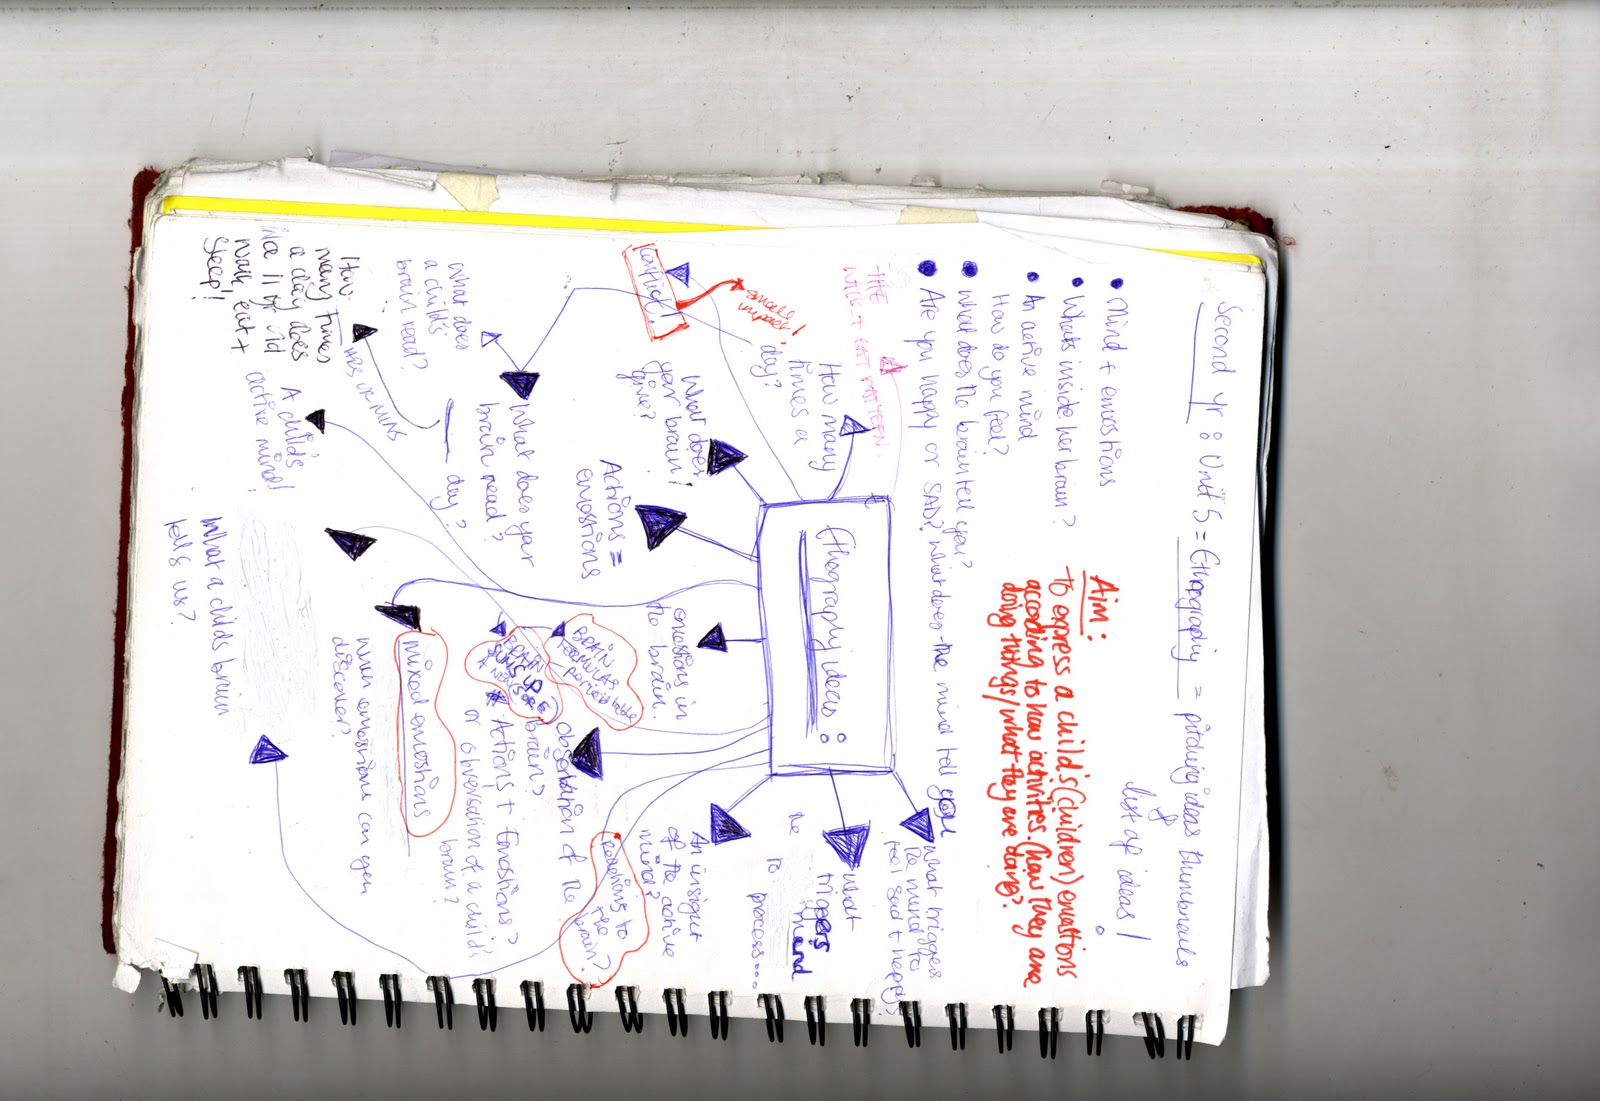 Second yr : Unit 5 = Ethography = producing ideas thumbnails
list of ideas!
• Mind + emostions
• Whats inside her brain?
• An active mind
How do you feel?
• What does the brain tell you?
• Are you happy or SAD? What does the mind tell you
Aim:
to express a child's (children) emostions
according to how activities. (how they are
doing things/what they are doing?
Ethography ideas :
THE
WALK + EAT PATTERN.
How many
times a
day?
small
impact!
Conflict!
What does
your brain
give?
Actions =
emostions
What does your
brain read?
What does
a child's
brain read?
day?
HRS, OR MINS
How
many times
a day does
a 11 yr old
walk, eat +
sleep!
A child's
active mind!
emostions in
the brain.
BRAIN
FORMULAS
BRAIN
SUMS UP
observation of the
brain?
* Actions + Emostions?
or obversation of a child's
brain?
mixed emostions
What emostions can you
discover?
What a childs brain
tells us?
Reactions to
the
brain?
An insight
of the active
mind?
What
triggers
the mind
to
process...
What triggers
the mind to
feel sad + happy?